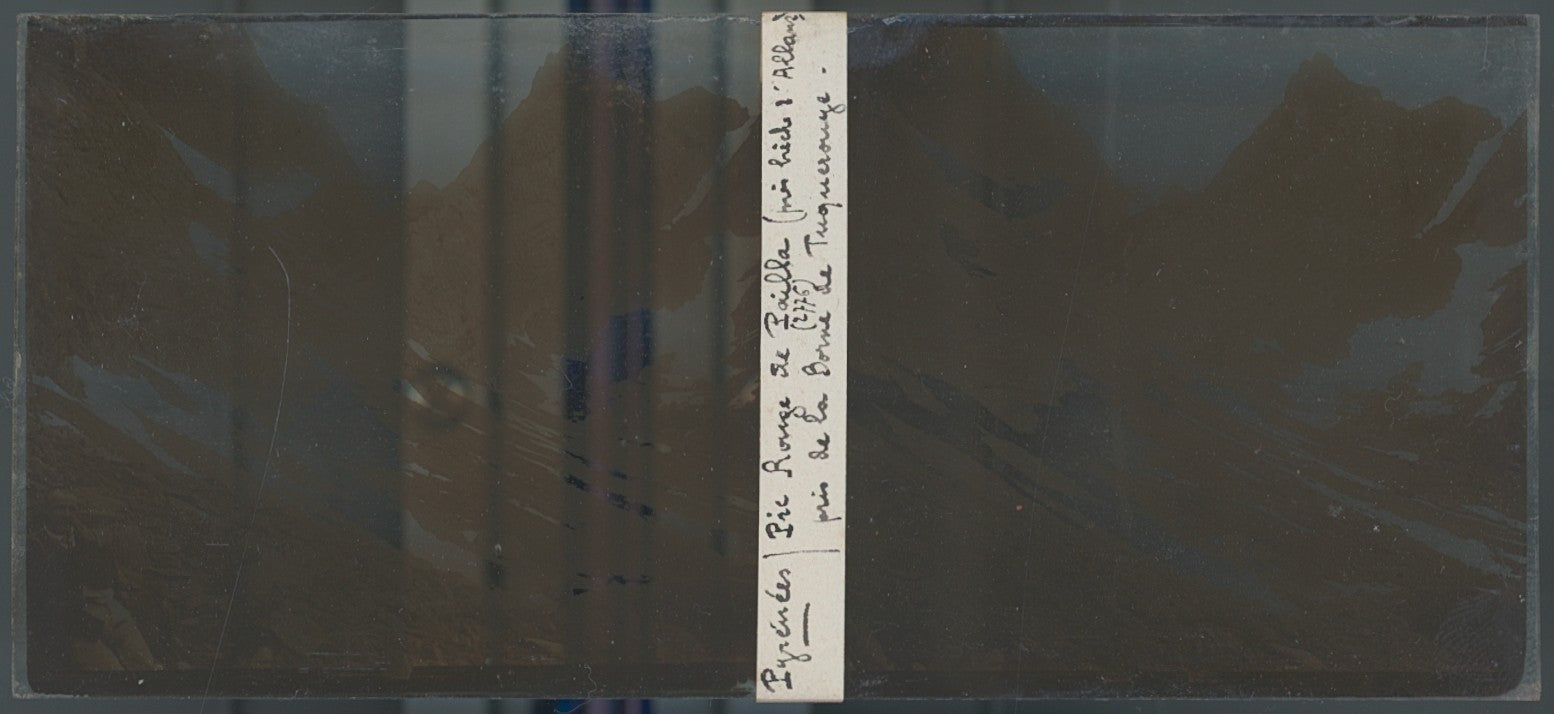 Pyrénées | Pic Rouge de Pailla (près hêche d'Allanz)
(2776)
pris de la Borne de Tuquerouye.